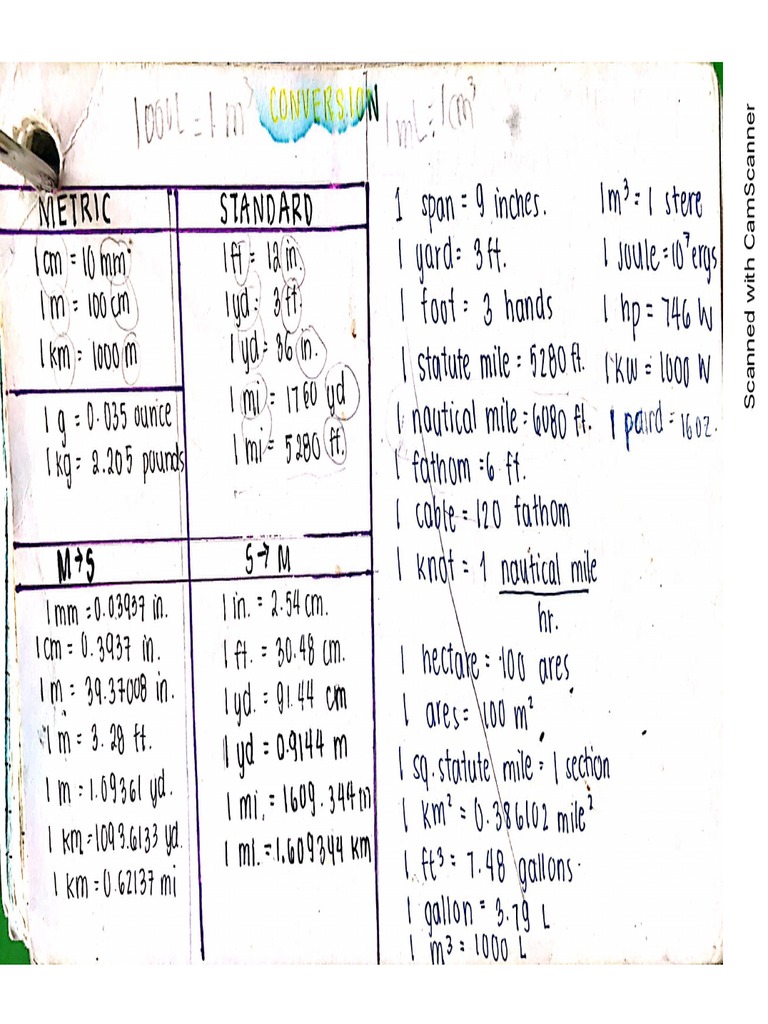 1000L = 1 m³ CONVERSION 1 mL = 1cm³
METRIC
1 cm = 10 mm
1 m = 100 cm
1 km = 1000 m
1 g = 0.035 ounce
1 kg = 2.205 pounds
STANDARD
1 ft = 12 in.
1 yd = 3 ft.
1 yd = 36 in.
1 mi = 1760 yd
1 mi = 5280 ft.
M→S
1 mm = 0.03937 in.
1 cm = 0.3937 in.
1 m = 39.37008 in.
1 m = 3.28 ft.
1 m = 1.09361 yd.
1 km = 1093.6133 yd.
1 km = 0.62137 mi
S→M
1 in. = 2.54 cm.
1 ft. = 30.48 cm.
1 yd. = 91.44 cm
1 yd = 0.9144 m
1 mi. = 1609.344 m
1 mi. = 1.609344 km
1 span = 9 inches.
1 yard = 3 ft.
1 foot = 3 hands
1 statute mile = 5280 ft.
1 nautical mile = 6080 ft.
1 fathom = 6 ft.
1 cable = 120 fathom
1 knot = 1 nautical mile
hr.
1 hectare = 100 ares
1 ares = 100 m²
1 sq. statute mile = 1 section
1 km² = 0.386102 mile²
1 ft³ = 7.48 gallons
1 gallon = 3.79 L
1 m³ = 1000 L
1m³ = 1 stere
1 Joule = 10⁷ ergs
1 hp = 746 W
1 kW = 1000 W
1 = 16oz.
Scanned with CamScanner